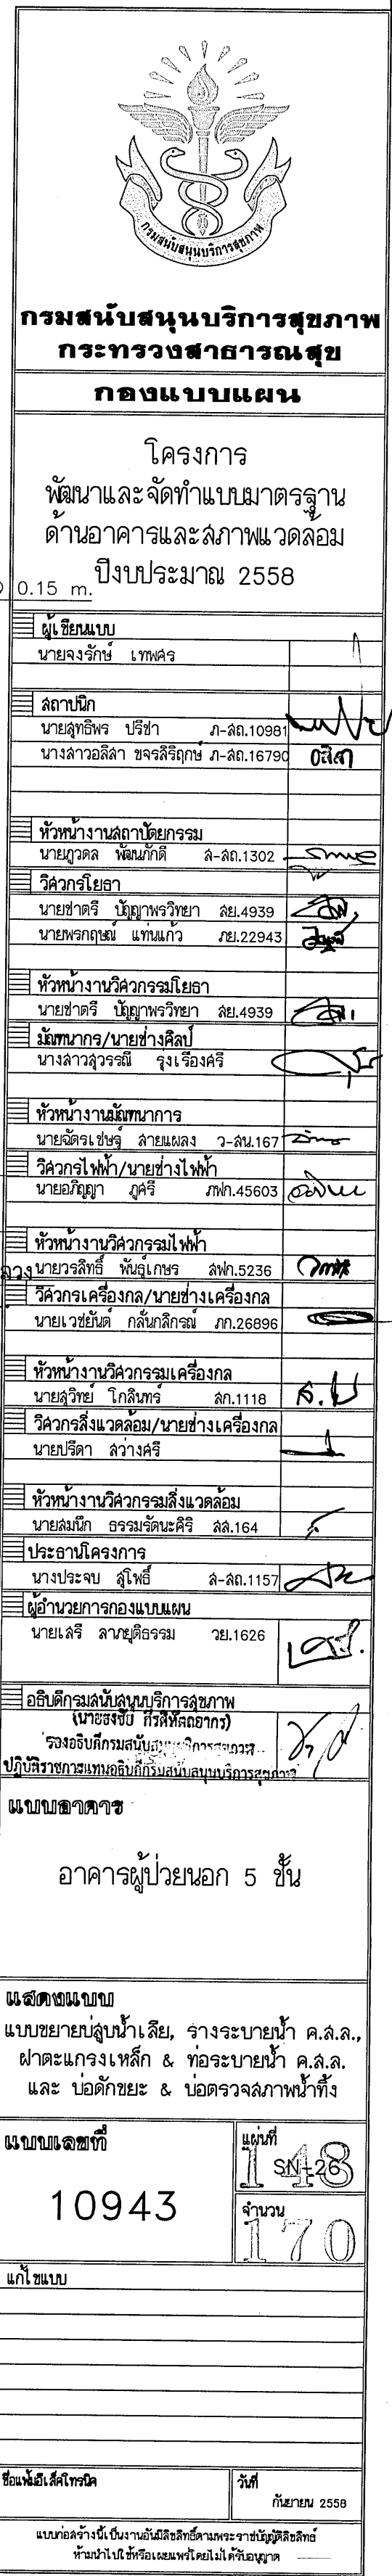 กรมสนับสนุนบริการสุขภาพ
กรมสนับสนุนบริการสุขภาพ
กระทรวงสาธารณสุข
กองแบบแผน
โครงการ
พัฒนาและจัดทำแบบมาตรฐาน
ด้านอาคารและสภาพแวดล้อม
ปีงบประมาณ 2558
0.15 m.
ผู้เขียนแบบ
นายจงรักษ์ เทพศร
สถาปนิก
นายสุทธิพร ปรีชา ภ-สถ.10981
นางสาวอลิสา ขจรสิริฤกษ์ ภ-สถ.16790
อลิสา
หัวหน้างานสถาปัตยกรรม
นายภูวดล พัฒนภักดี ส-สถ.1302
วิศวกรโยธา
นายชาตรี ปัญญาพรวิทยา สย.4939
นายพรกฤษณ์ แท่นแก้ว ภย.22943
หัวหน้างานวิศวกรรมโยธา
นายชาตรี ปัญญาพรวิทยา สย.4939
มัณฑนากร/นายช่างศิลป์
นางสาวสุวรรณี รุ่งเรืองศรี
หัวหน้างานมัณฑนาการ
นายฉัตรเชษฐ์ สายแผลง ว-สน.167
วิศวกรไฟฟ้า/นายช่างไฟฟ้า
นายอภิญญา ภูศรี ภฟก.45603
หัวหน้างานวิศวกรรมไฟฟ้า
นายวรสิทธิ์ พันธุ์เกษร สฟก.5236
วิศวกรเครื่องกล/นายช่างเครื่องกล
นายเวชยันต์ กลั่นกสิกรณ์ ภก.26896
หัวหน้างานวิศวกรรมเครื่องกล
นายสุวิทย์ โกสินทร์ สก.1118
วิศวกรสิ่งแวดล้อม/นายช่างเครื่องกล
นายปรีดา สว่างศรี
หัวหน้างานวิศวกรรมสิ่งแวดล้อม
นายสมนึก ธรรมรัตนะศิริ สส.164
ประธานโครงการ
นางประจบ สุโพธิ์ ส-สถ.1157
ผู้อำนวยการกองแบบแผน
นายเสรี ลาภยุติธรรม วย.1626
อธิบดีกรมสนับสนุนบริการสุขภาพ
(นายธงชัย กีรติหัตถยากร)
รองอธิบดีกรมสนับสนุนบริการสุขภาพ
ปฏิบัติราชการแทนอธิบดีกรมสนับสนุนบริการสุขภาพ
แบบอาคาร
อาคารผู้ป่วยนอก 5 ชั้น
แสดงแบบ
แบบขยายบ่สูบน้ำเสีย, รางระบายน้ำ ค.ส.ล.,
ฝาตะแกรงเหล็ก & ท่อระบายน้ำ ค.ส.ล.
และ บ่อดักขยะ & บ่อตรวจสภาพน้ำทิ้ง
แบบเลขที่
10943
แผ่นที่
SN-26
148
จำนวน
170
แก้ไขแบบ
ชื่อแฟ้มอีเล็คโทรนิค
วันที่
กันยายน 2558
แบบก่อสร้างนี้เป็นงานอันมีลิขสิทธิ์ตามพระราชบัญญัติลิขสิทธิ์
ห้ามนำไปใช้หรือเผยแพร่โดยไม่ได้รับอนุญาต